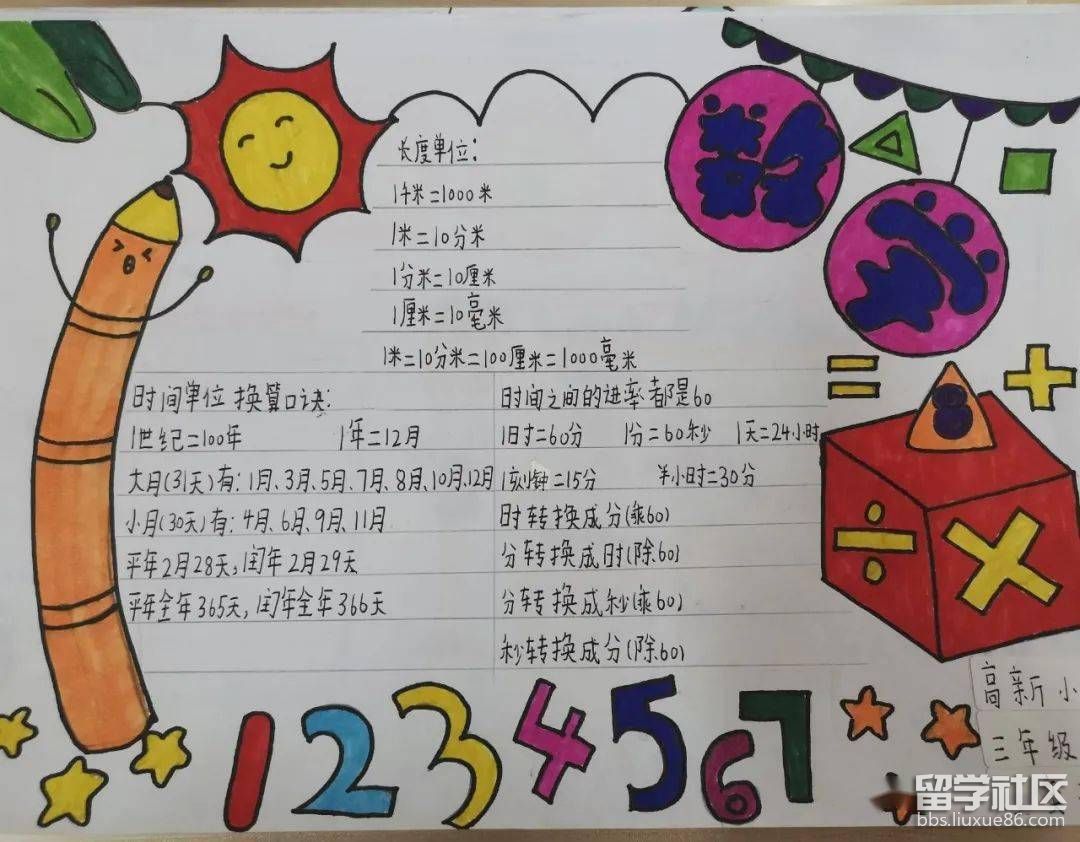 数学
长度单位:
1千米=1000米
1米=10分米
1分米=10厘米
1厘米=10毫米
1米=10分米=100厘米=1000毫米
时间单位换算口诀:
1世纪=100年 1年=12月
大月(31天)有:1月、3月、5月、7月、8月、10月、12月
小月(30天)有:4月、6月、9月、11月
平年2月28天,闰年2月29天
平年全年365天,闰年全年366天
时间之间的进率都是60
1时=60分 1分=60秒 1天=24小时
1刻钟=15分 半小时=30分
时转换成分(乘60)
分转换成时(除60)
分转换成秒(乘60)
秒转换成分(除60)
= +
8
÷ ×
高新小
三年级
1 2 3 4 5 6 7
留学社区
bbs.liuxue86.com